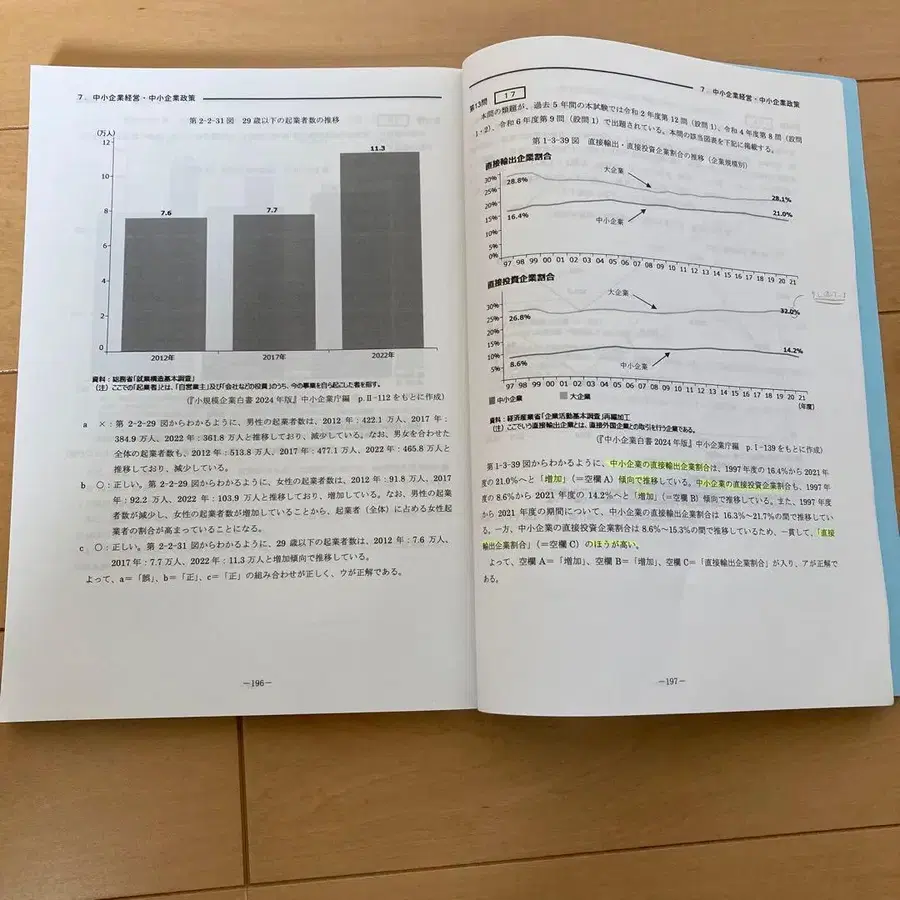 7. 中小企業経営・中小企業政策
第2-2-31図 29歳以下の起業者数の推移
(万人)
12
10
8
6
4
2
0
7.6
7.7
11.3
2012年
2017年
2022年
資料：総務省「就業構造基本調査」
(注) ここでの「起業者」とは、「自営業主」及び「会社などの役員」のうち、今の事業を自ら起こした者を指す。
(『小規模企業白書2024年版』中小企業庁編 p.Ⅱ-112をもとに作成)
a ×：第2-2-29図からわかるように、男性の起業者数は、2012年：422.1万人、2017年：
384.9万人、2022年：361.8万人と推移しており、減少している。なお、男女を合わせた
全体の起業者数も、2012年：513.8万人、2017年：477.1万人、2022年：465.8万人と
推移しており、減少している。
b ○：正しい。第2-2-29図からわかるように、女性の起業者数は、2012年：91.8万人、2017
年：92.2万人、2022年：103.9万人と推移しており、増加している。なお、男性の起業
者数が減少し、女性の起業者数が増加していることから、起業者（全体）に占める女性起
業者の割合が高まっていることになる。
c ○：正しい。第2-2-31図からわかるように、29歳以下の起業者数は、2012年：7.6万人、
2017年：7.7万人、2022年：11.3万人と増加傾向で推移している。
よって、a＝「誤」、b＝「正」、c＝「正」の組み合わせが正しく、ウが正解である。
－196－
7. 中小企業経営・中小企業政策
第13問 17
本問の類題が、過去5年間の本試験では令和2年度第12問（設問1）、令和4年度第8問（設問
1・2）、令和6年度第9問（設問1）で出題されている。本問の該当図表を下記に掲載する。
第1-3-39図 直接輸出・直接投資企業割合の推移（企業規模別）
直接輸出企業割合
30%
25%
20%
15%
10%
5%
0%
28.8%
大企業
28.1%
16.4%
中小企業
21.0%
97 98 99 00 01 02 03 04 05 06 07 08 09 10 11 12 13 14 15 16 17 18 19 20 21
直接投資企業割合
30%
25%
20%
15%
10%
5%
0%
26.8%
大企業
32.0%
8.6%
中小企業
14.2%
97 98 99 00 01 02 03 04 05 06 07 08 09 10 11 12 13 14 15 16 17 18 19 20 21
(年度)
中小企業 大企業
資料：経済産業省「企業活動基本調査」再編加工
(注) ここでいう直接輸出企業とは、直接外国企業との取引を行う企業である。
(『中小企業白書2024年版』中小企業庁編 p.1-139をもとに作成)
第1-3-39図からわかるように、中小企業の直接輸出企業割合は、1997年度の16.4%から2021年
度の21.0%へと「増加」（＝空欄A）傾向で推移している。中小企業の直接投資企業割合も、1997年
度の8.6%から2021年度の14.2%へと「増加」（＝空欄B）傾向で推移している。また、1997年度
から2021年度の期間について、中小企業の直接輸出企業割合は16.3%～21.7%の間で推移してい
る。一方、中小企業の直接投資企業割合は8.6%～15.3%の間で推移しているため、一貫して、「直接
輸出企業割合」（＝空欄C）のほうが高い。
よって、空欄A＝「増加」、空欄B＝「増加」、空欄C＝「直接輸出企業割合」が入り、アが正解で
ある。
－197－